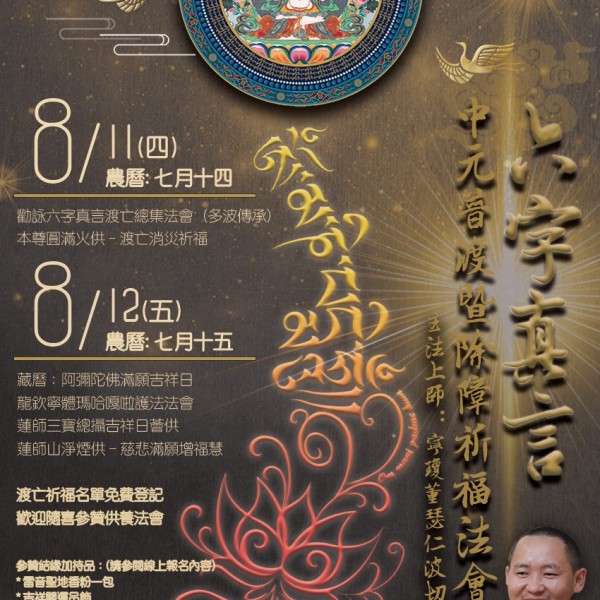 六字真言
中元普渡暨除障祈福法會
主法上師：寧瓊董瑟仁波切
8/11(四)
農曆:七月十四
勸詠六字真言渡亡總集法會（多波傳承）
本尊圓滿火供－渡亡消災祈福
8/12(五)
農曆:七月十五
藏曆：阿彌陀佛滿願吉祥日
龍欽寧體瑪哈嘎啦護法法會
蓮師三寶總攝吉祥日薈供
蓮師山淨煙供－慈悲滿願增福慧
渡亡祈福名單免費登記
歡迎隨喜參贊供養法會
參贊結緣加持品：(請參閱線上報名內容)
*雷音聖地香粉一包
*吉祥開運吊飾